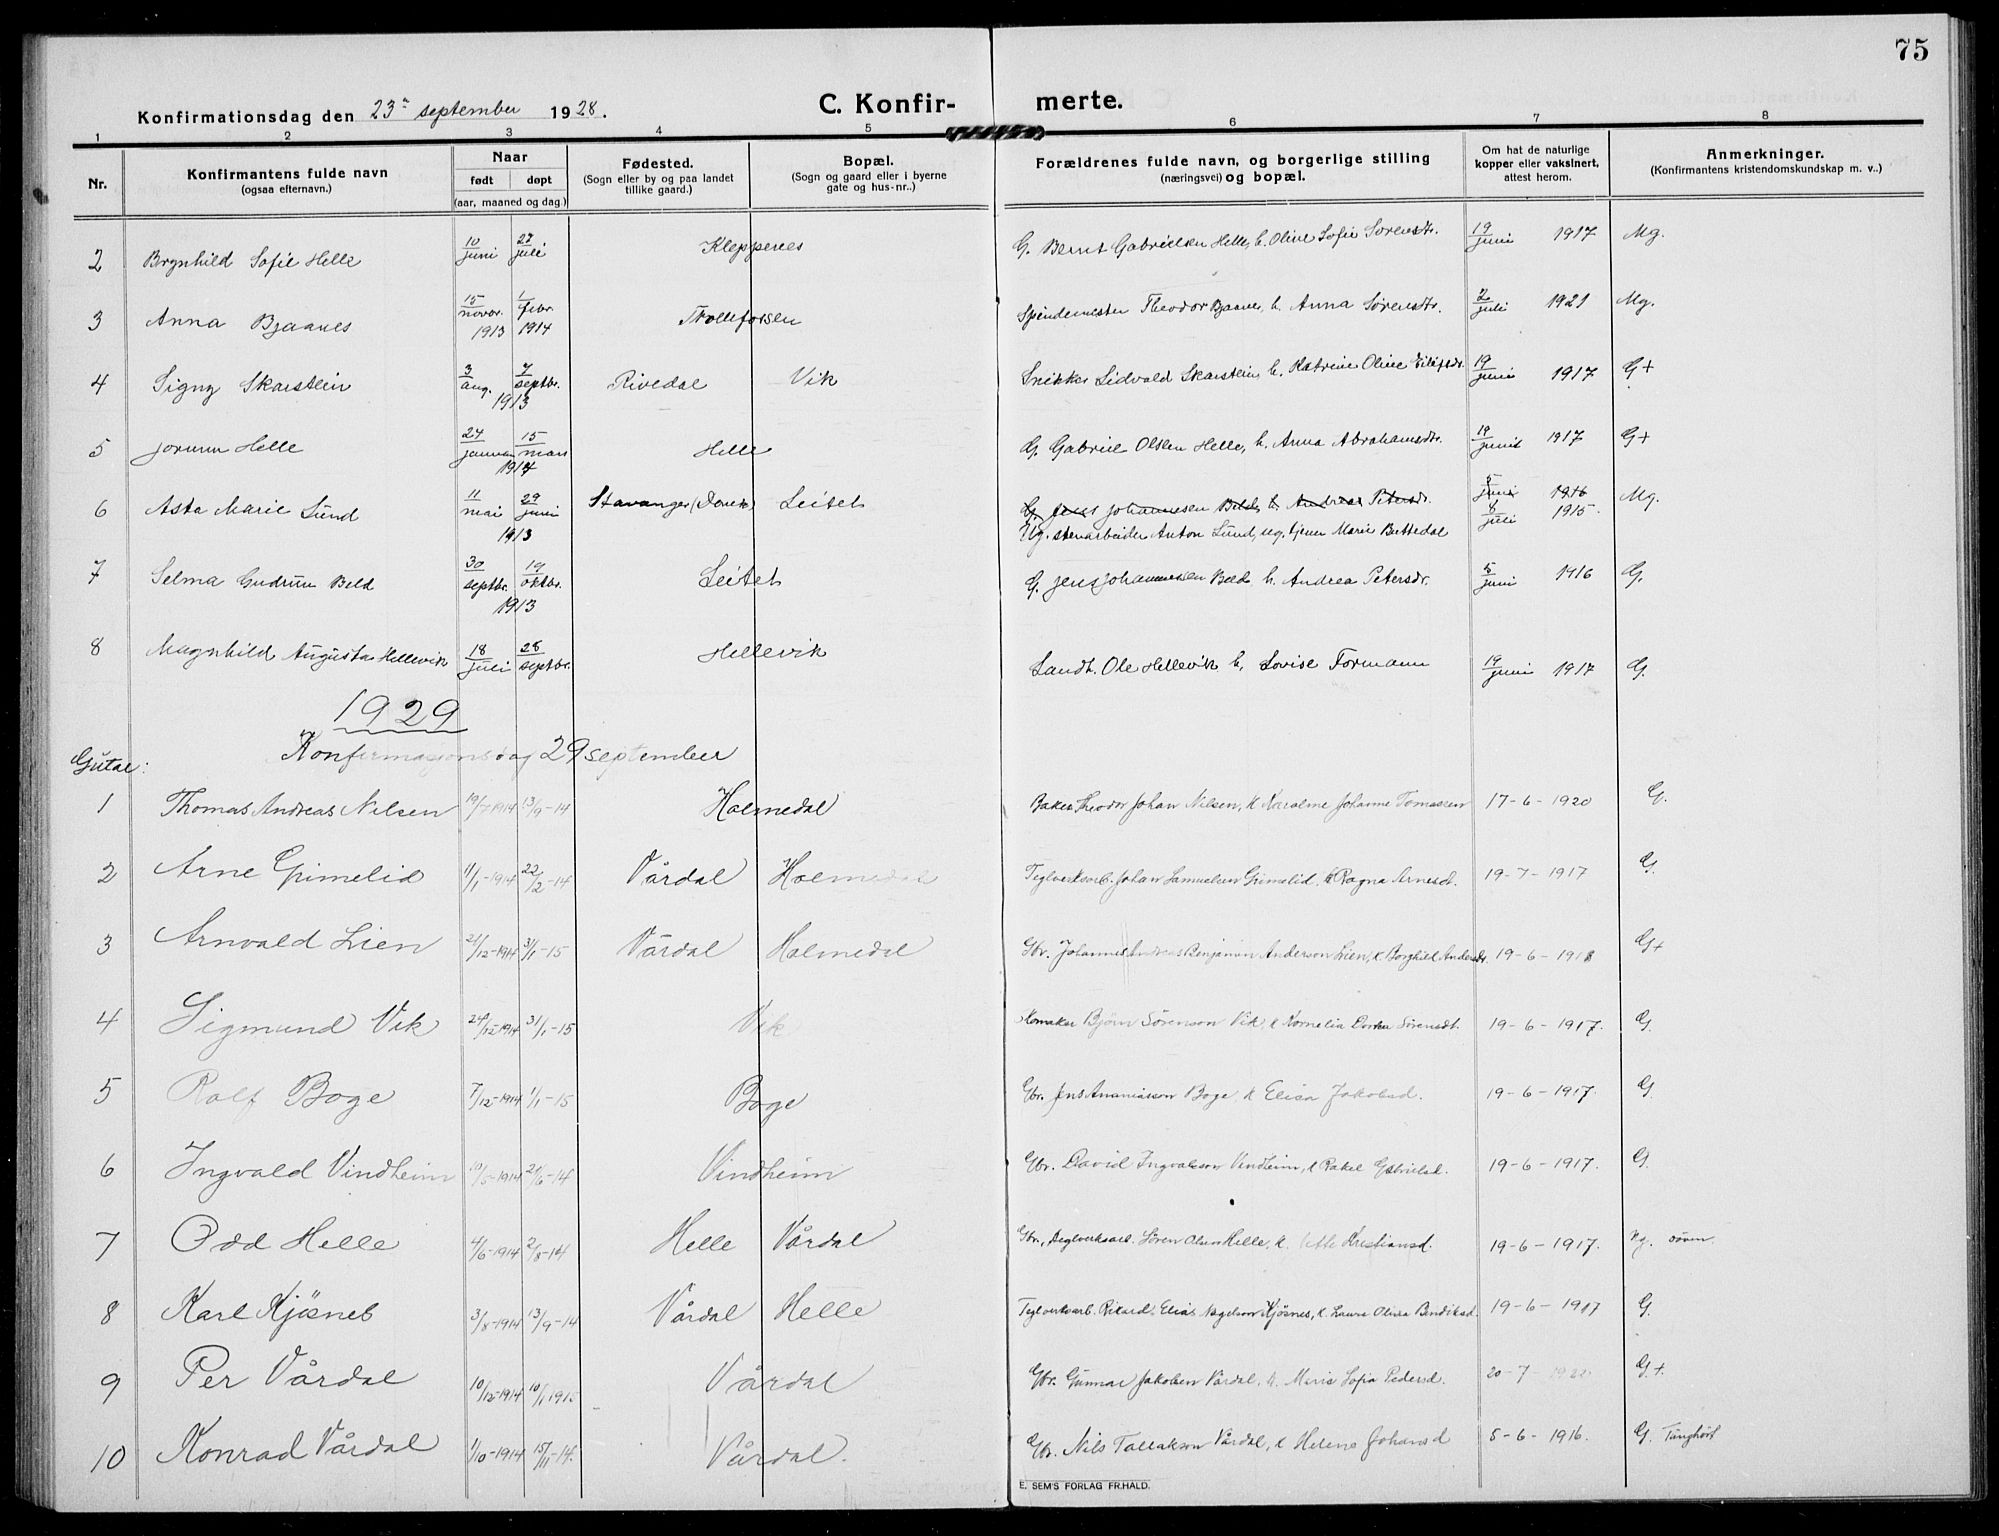 75
Konfirmationsdag den 23de september 1928.
C. Konfir- merte.
1 2 3 4 5 6 7 8
Nr.
Konfirmantens fulde navn
(ogsaa efternavn.)
Naar
født døpt
(aar, maaned og dag.)
Fødested.
(Sogn eller by og paa landet
tillike gaard.)
Bopæl.
(Sogn og gaard eller i byerne
gate og hus-nr..)
Forældrenes fulde navn, og borgerlige stilling
(næringsvei) og bopæl.
Om hat de naturlige
kopper eller vaksinert,
attest herom.
Anmerkninger.
(Konfirmantens kristendomskundskap m. v..)
2 Brynhild Sofie Helle 10/juni 27/juli Kleppenes G. Bernt Gabrielsen Helle, h. Oline Sofie Sørensdtr. 19/juni 1917 Mg.
3 Anna Bjaanes 15/novbr. 1913 1/febr. 1914 Trollefossen Spindemester Theodor Bjaanes, h. Anna Sørensdtr. 2/juli 1921 Mg.
4 Signy Skarstein 3/aug. 7/septbr. 1913 Rivedal Vik Snikker Sidvald Skarstein, h. Katrine Oline Eilifsdtr. 19/juni 1917 G+
5 Jorunn Helle 24/januar 15/mars 1914 Helle G. Gabriel Olsen Helle, h. Anna Abrahamsdtr. 19/juni 1917 G+
6 Asta Marie Lund 11/mai 29/juni 1913 Stavanger (Domk.) Leitet G. Jens Johannesen Beld, h. Andrea Petersdr. 5/juni 1916 Mg.
8/juli 1915.
Ug. stenarbeider Anton Lund, ug. tjener Marie Buttedal
7 Selma Gudrun Beld 30/septbr. 19/oktbr. 1913 Leitet G. Jens Johannessen Beld h. Andrea Petersdr. 5/juni 1916 G.
8 Magnhild Augusta Hellevik 18/juli 28/septbr. Hellevik Landh. Ole Hellevik h. Lovise Formann 19/juni 1917 G.
1929
Konfirmasjonsdag 29 september
Gutar:
1 Thomas Andreas Nilsen 19/7 1914 13/9-14 Holmedal Baker Theodor Johan Nilsen, k Karoline Johanne Tomassen 17-6-1920 G.
2 Arne Grimelid 11/1-1914 22/2-14 Vårdal Holmedal Teglverksarb. Johan Samuelsen Grimelid, k Ragna Arnesdt. 19-7-1917 G.
3 Arnvald Lien 21/12-1914 31/1-15 Vårdal Holmedal Gbr. Johannes Andreas Benjamin Anderson Lien, k Borghild Andersdt. 19-6-1918 G+
4 Sigmund Vik 24/12-1914 31/1-15 Vik Komaker Bjørn Sørenson Vik, k Kornelia Dorthea Sørensdt. 19-6-1917. G.
5 Rolf Boge 7/12-1914 1/1-15 Boge Gbr. Jens Ananiasson Boge, k Elisa Jakobsd. 19-6-1917. G.
6 Ingvald Vindheim 10/5-1914 21/6-14 Vindheim Gbr. David Ingvalsson Vindheim, k Rakel Gabrielsd. 19-6-1917. G.
7 Odd Helle 4/6-1914 2/8-14 Helle Vårdal Gbr., Teglverksarb. Søren Olsen Helle, k. Kristiansd. 19-6-1917. Ng.
8 Karl Kjösnes 3/8-1914 13/9-14 Vårdal Helle Teglverksarb. Rikard Elias Kjøsnes, k. Laura Olina Bendiksd. 19-6-1917 G.
9 Per Vårdal 10/12-1914 10/1 1915 Vårdal Gbr. Gunnar Jakobsen Vårdal, k. Marie Sofia Pedersd. 20-7-1922 G+.
10 Konrad Vårdal 1/10-1914 15/11-14. Vårdal. Gbr. Nils Tollakson Vårdal, k Helene Johansd 5-6-1916. G. Tunghört
E. SEM'S FORLAG FR.HALD.